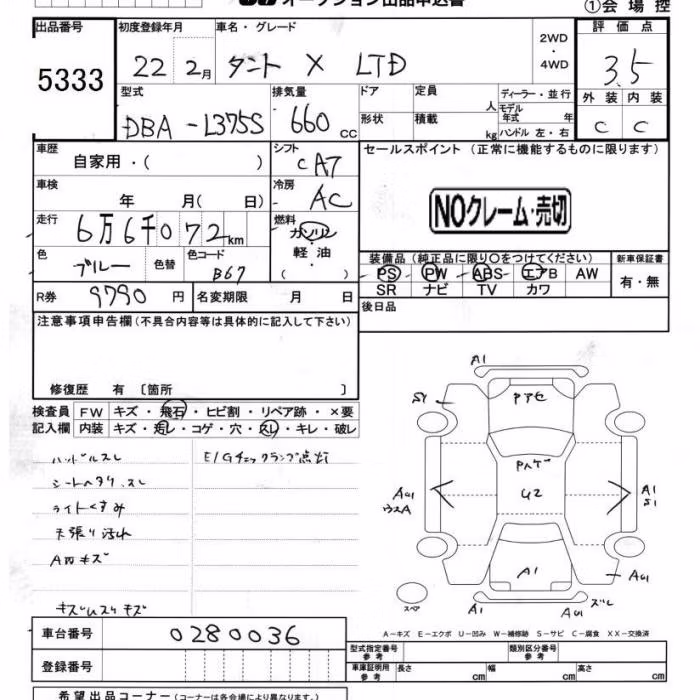 オークション出品申込書
①会場控
出品番号
5333
初度登録年月
22 2月
車名・グレード
タント X LTD
2WD
・
4WD
評価点
3.5
外装 内装
C C
型式
DBA-L375S
排気量
660 cc
ドア
形状
定員
人
積載
kg
ディーラー・並行
モデル
年式 年
ハンドル 左・右
車歴
自家用・( )
シフト
CA7
車検
年 月( 日)
冷房
AC
走行
6万6千072km
燃料
ガソリン
軽油
・
( )
色
ブルー
色替
色コード
B67
R券
9790円
名変期限 月 日
セールスポイント (正常に機能するものに限ります)
NOクレーム・売切
装備品 (純正品に限り○をつけてください)
PS PW ABS エアB AW
SR ナビ TV カワ
新車保証書
有・無
後日品
注意事項申告欄(不具合内容等は具体的に記入して下さい)
修復歴 有 〔箇所 〕
検査員
記入欄
FW キズ・飛石・ヒビ割・リペア跡・×要
内装 キズ・汚レ・コゲ・穴・スレ・キレ・破レ
ハンドルスレ
シートヘタリ、スレ
ライトくすみ
天張り汚れ
A内キズ
E/Gチェックランプ点灯
A1
SY
Pアセ
Pハゲ
U2
AU1
ウスA
A1
S1
A1
AU1
スペア
A1
AU1
ズレ
A-キズ E-エクボ U-凹み W-補修跡 S-サビ C-腐食 XX-交換済
車台番号
0280036
登録番号
型式指定番号
参考
類別区分番号
参考
車庫証明用
参考
長さ cm
幅 cm
高さ cm
希望出品コーナー (コーナーは各会場により異なります。)